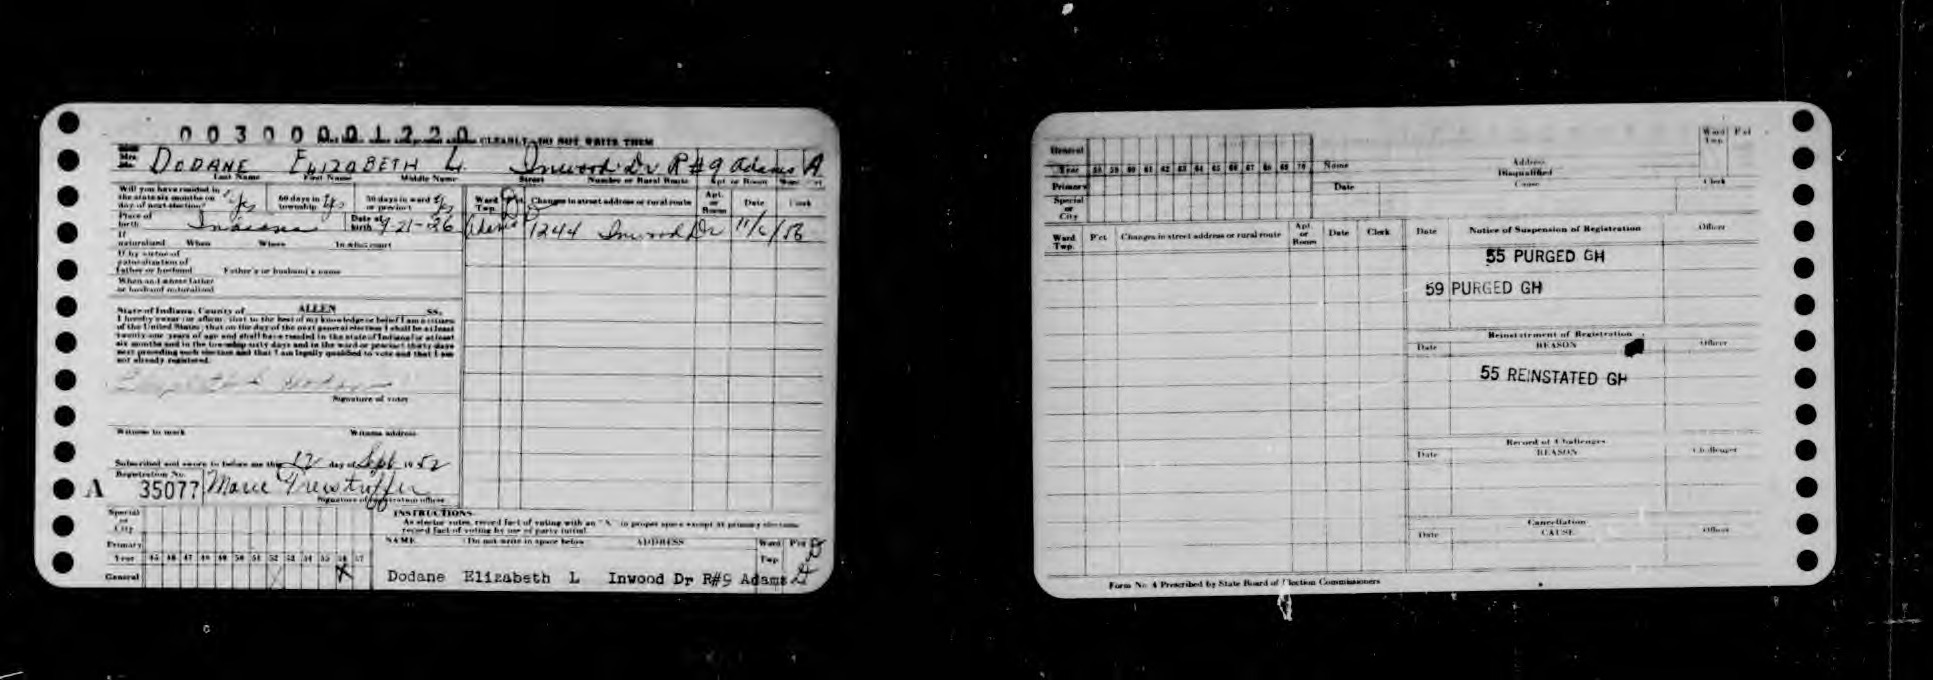 003000001220 CLEARLY—DO NOT WRITE THEM
Mrs. DODANE ELIZABETH L. Inwood Dr R#9 Adams A
Last Name First Name Middle Name Street Number or Rural Route Apt. or Room
Will you have resided in the state six months on day of next election? Yes 60 days in township Yes 30 days in ward or precinct Yes
Ward Twp. Changes in street address or rural route Apt. or Room Date Clerk
Place of birth Indiana Date of birth 9-21-26 Adams 1244 Inwood Dr 11/6/56
If naturalized When Where In what court
If by virtue of naturalization of father or husband Father's or husband's name
When and where father or husband naturalized
State of Indiana, County of ALLEN SS.
I hereby swear (or affirm) that to the best of my knowledge or belief I am a citizen
of the United States; that on the day of the next general election I shall be at least
twenty-one years of age and shall have resided in the state of Indiana for at least
six months and in the township sixty days and in the ward or precinct thirty days
next preceding such election and that I am legally qualified to vote and that I am
not already registered.
Elizabeth L Dodane
Signature of voter
Witness to mark Witness address
Subscribed and sworn to before me this 17 day of Sept 1952
Registration No.
A 35077 Marie
Signature of registration officer
Special or City
Primary
Year 45 46 47 48 49 50 51 52 53 54 55 56 57
General X
INSTRUCTIONS
As elector votes, record fact of voting with an "X" in proper space except at primary elections
record fact of voting by use of party initial
NAME (Do not write in space below) ADDRESS Ward Twp Pct
Dodane Elizabeth L Inwood Dr R#9 Adams
General
Year 58 59 60 61 62 63 64 65 66 67 68 69 70 Name Address Ward Twp. Pct
Primary Disqualified
Special or City Date Cause Clerk
Ward Twp. Pct Changes in street address or rural route Apt. or Room Date Clerk
Date Notice of Suspension of Registration Officer
55 PURGED GH
59 PURGED GH
Reinstatement of Registration
Date REASON Officer
55 REINSTATED GH
Record of Challenges
Date REASON Challenger
Cancellation
Date CAUSE Officer
Form No. 4 Prescribed by State Board of Election Commissioners